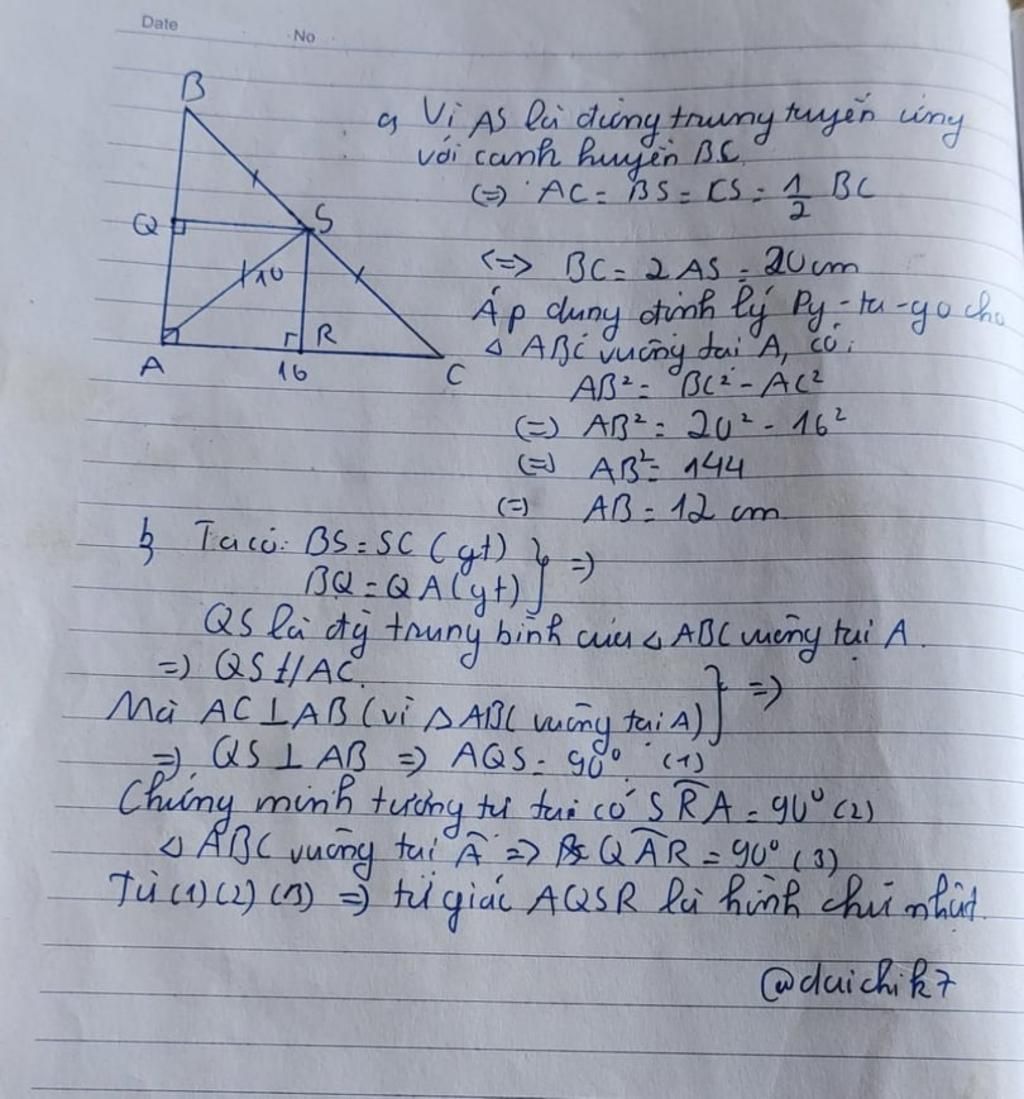 Date
No
B
Q
S
10
A
R
16
C
a, Vì AS là đường trung tuyến ứng
với cạnh huyền BC
(=) AC = BS = CS = 1/2 BC
<=> BC = 2 AS = 20 cm
Áp dụng định lý Py-ta-go cho
△ ABC vuông tại A, có:
AB² = BC² - AC²
(=) AB² = 20² - 16²
(=) AB² = 144
(=) AB = 12 cm
b, Ta có: BS = SC (gt) } =)
BQ = QA (gt)
QS là đg trung bình của △ ABC vuông tại A.
=) QS // AC.
Mà AC ⊥ AB (vì △ ABC vuông tại A) } =)
=) QS ⊥ AB =) AQS = 90° (1)
Chứng minh tương tự tai có SRA = 90° (2)
△ ABC vuông tại A =) QAR = 90° (3)
Từ (1) (2) (3) =) tứ giác AQSR là hình chữ nhật.
@daichik7